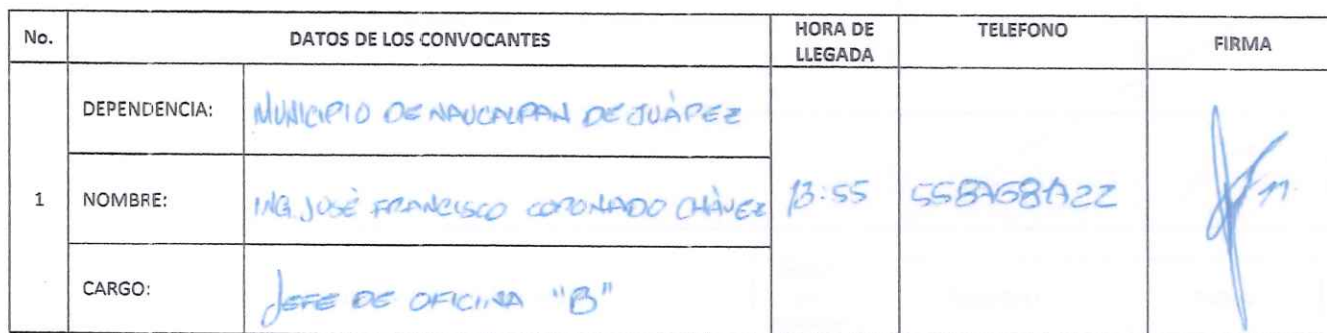 No.
DATOS DE LOS CONVOCANTES
HORA DE LLEGADA
TELEFONO
FIRMA
1
DEPENDENCIA: MUNICIPIO DE NAUCALPAN DE JUÁREZ
NOMBRE: ING. JOSÉ FRANCISCO CORONADO CHÁVEZ
13:55
CARGO: JEFE DE OFICINA "B"